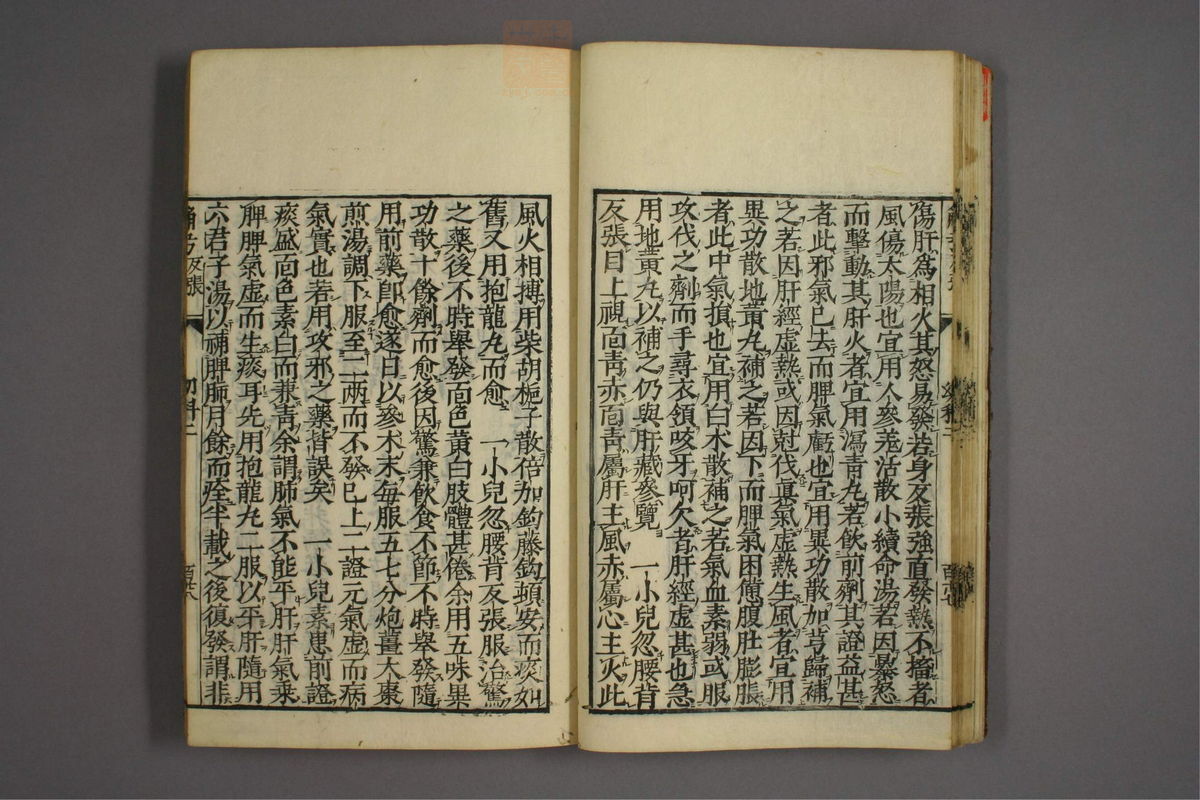 傷肝爲相火其怒易發若身反張強直發熱不搐者
風傷太陽也宜用人參羌活散小續命湯若因暴怒
而擊動其肝火者宜用瀉青丸若飲前劑其證益甚
者此邪氣已去而脾氣虧也宜用異功散加芎歸補
之若因肝經虛熱或因尅伐眞氣虛熱生風者宜用
異功散地黃丸補之若因下而脾氣困憊腹肚膨脹
者此中氣損也宜用白朮散補之若氣血素弱或服
攻伐之劑而手尋衣領咬牙呵欠者肝經虛甚也急
用地黃丸以補之仍與肝臟參覽　一小兒忽腰背
反張目上視面青赤面青屬肝主風赤屬心主火此
風火相搏用柴胡梔子散倍加鈎藤鈎頓安而痰如
舊又用抱龍丸而愈　一小兒忽腰背反張服治驚
之藥後不時舉發面色黃白肢體甚倦余用五味異
功散十餘劑而愈後因驚兼飲食不節不時舉發隨
用前藥即愈遂日以參朮末每服五七分炮薑大棗
煎湯調下服至二兩而不發已上二證元氣虛而病
氣實也若用攻邪之藥皆誤矣　一小兒素患前證
痰盛面色素白而兼青余謂肺氣不能平肝肝氣乘
脾脾氣虛而生痰耳先用抱龍丸二服以平肝隨用
六君子湯以補脾肺月餘而痊半載之後復發謂非
反張
幼科二
百六八